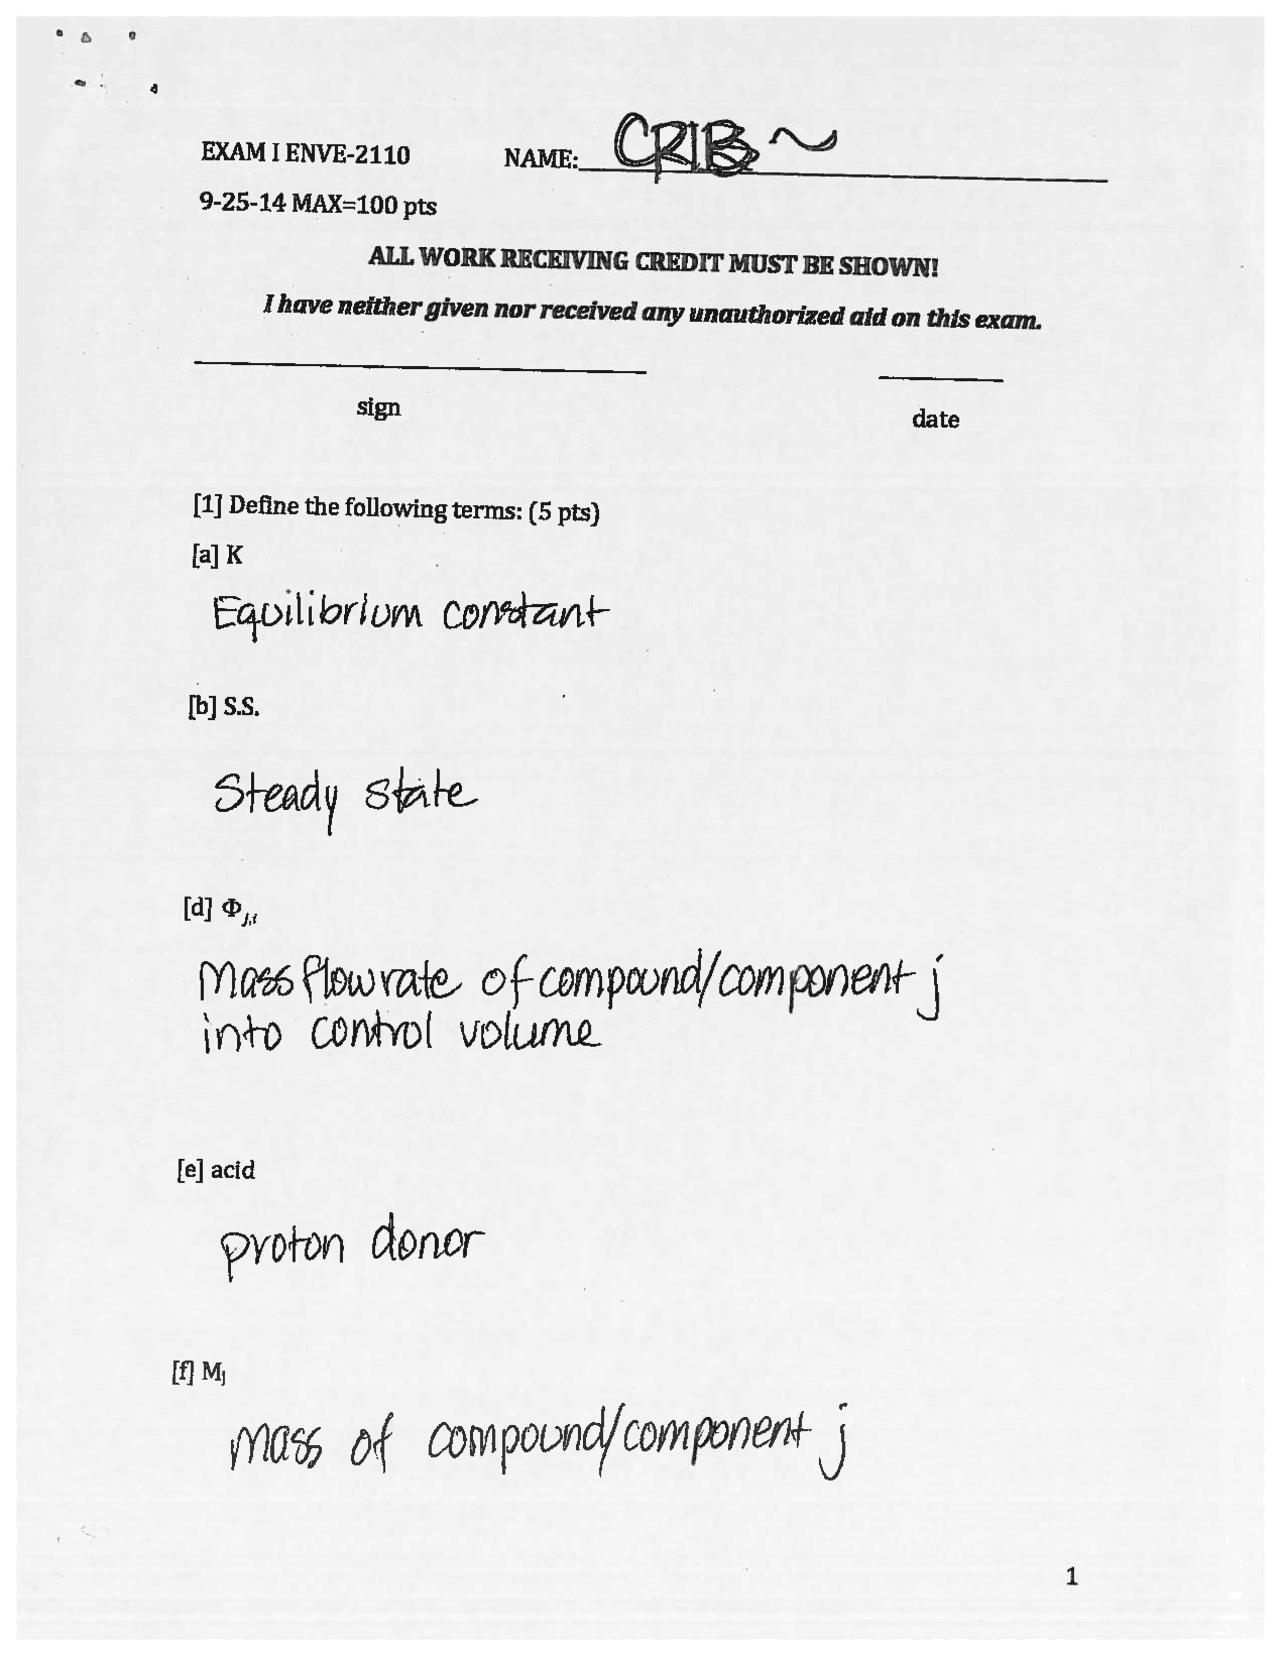 EXAM I ENVE-2110 NAME: CRIB~
9-25-14 MAX=100 pts
ALL WORK RECEIVING CREDIT MUST BE SHOWN!
I have neither given nor received any unauthorized aid on this exam.
sign date
[1] Define the following terms: (5 pts)
[a] K
Equilibrium constant
[b] S.S.
Steady state
[d] Φj,i
Mass flowrate of compound/component j
into control volume
[e] acid
proton donor
[f] Mj
mass of compound/component j
1